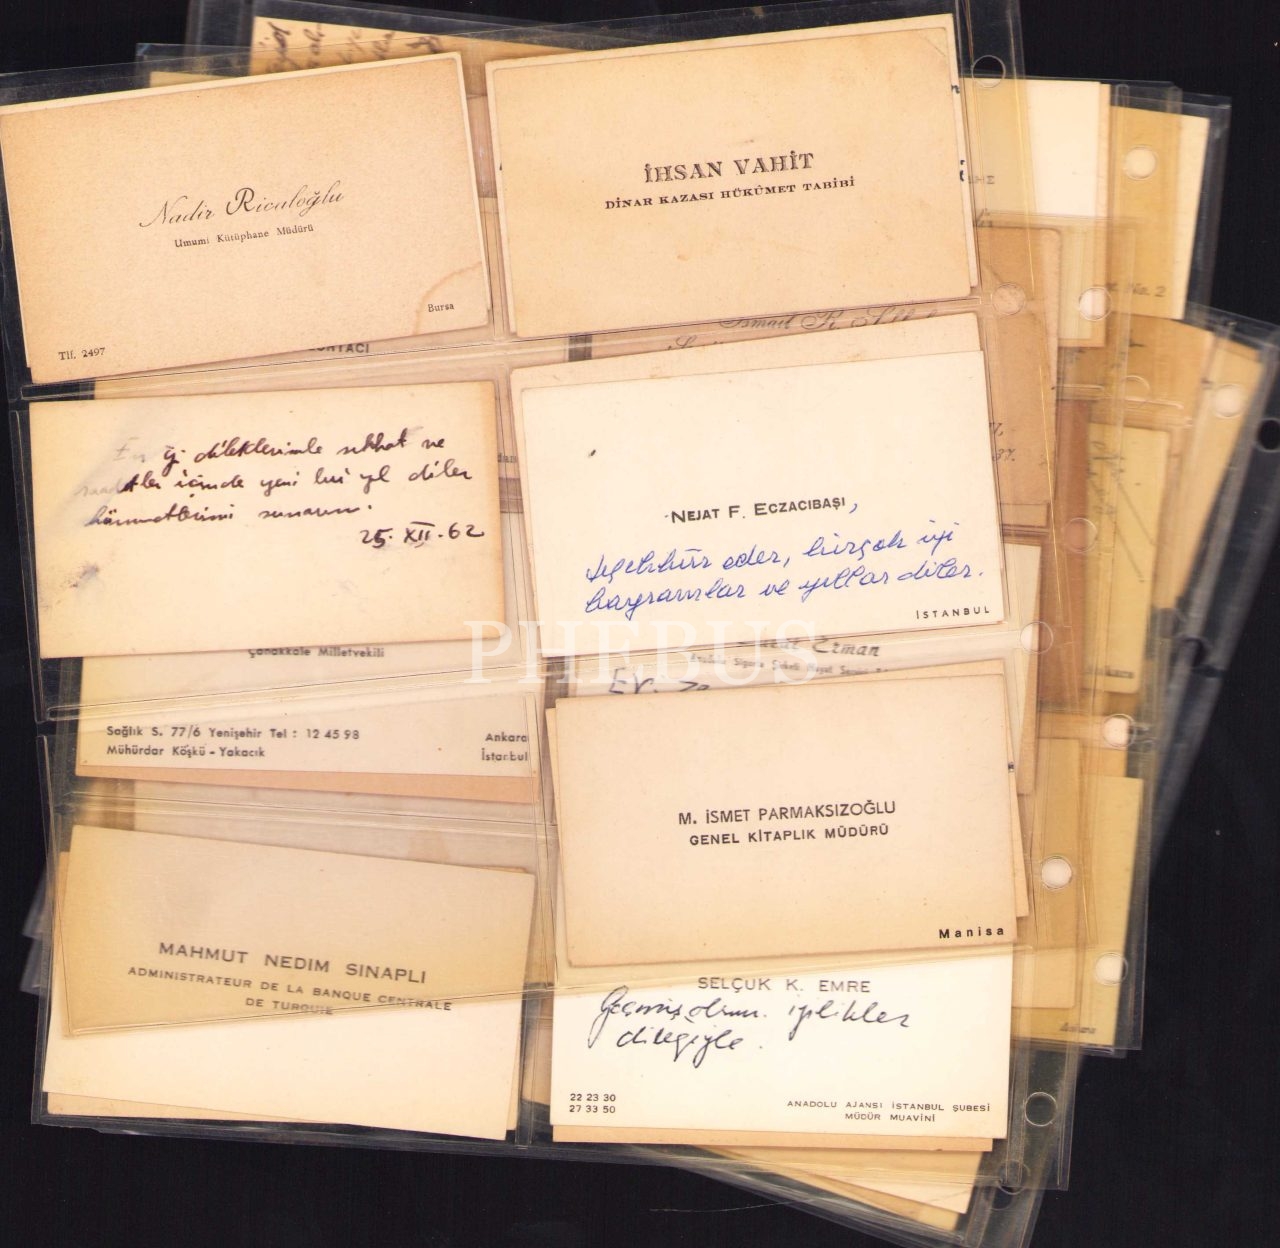 Nadir Ricaloğlu
Umumi Kütüphane Müdürü
Bursa
Tlf. 2497
İHSAN VAHİT
DİNAR KAZASI HÜKÛMET TABİBİ
No. 2
İsmail R.
37.
En iyi dileklerimle sıhhat ve
saadetler içinde yeni bir yıl diler
hürmetlerimi sunarım.
25. XII. 62
NEJAT F. ECZACIBAŞI,
teşekkür eder, birçok iyi
bayramlar ve yıllar diler.
İSTANBUL
PHEBUS
Çanakkale Milletvekili
Erman
Anadolu Sigorta Şirketi Hayat
Ev.
Sağlık S. 77/6 Yenişehir Tel : 12 45 98
Ankara
Mühürdar Köşkü - Yakacık
İstanbul
M. İSMET PARMAKSIZOĞLU
GENEL KİTAPLIK MÜDÜRÜ
Manisa
MAHMUT NEDIM SINAPLI
ADMINISTRATEUR DE LA BANQUE CENTRALE
DE TURQUIE
SELÇUK K. EMRE
Geçmiş olsun. iyilikler
dileğiyle.
22 23 30
27 33 50
ANADOLU AJANSI İSTANBUL ŞUBESİ
MÜDÜR MUAVİNİ
Ankara